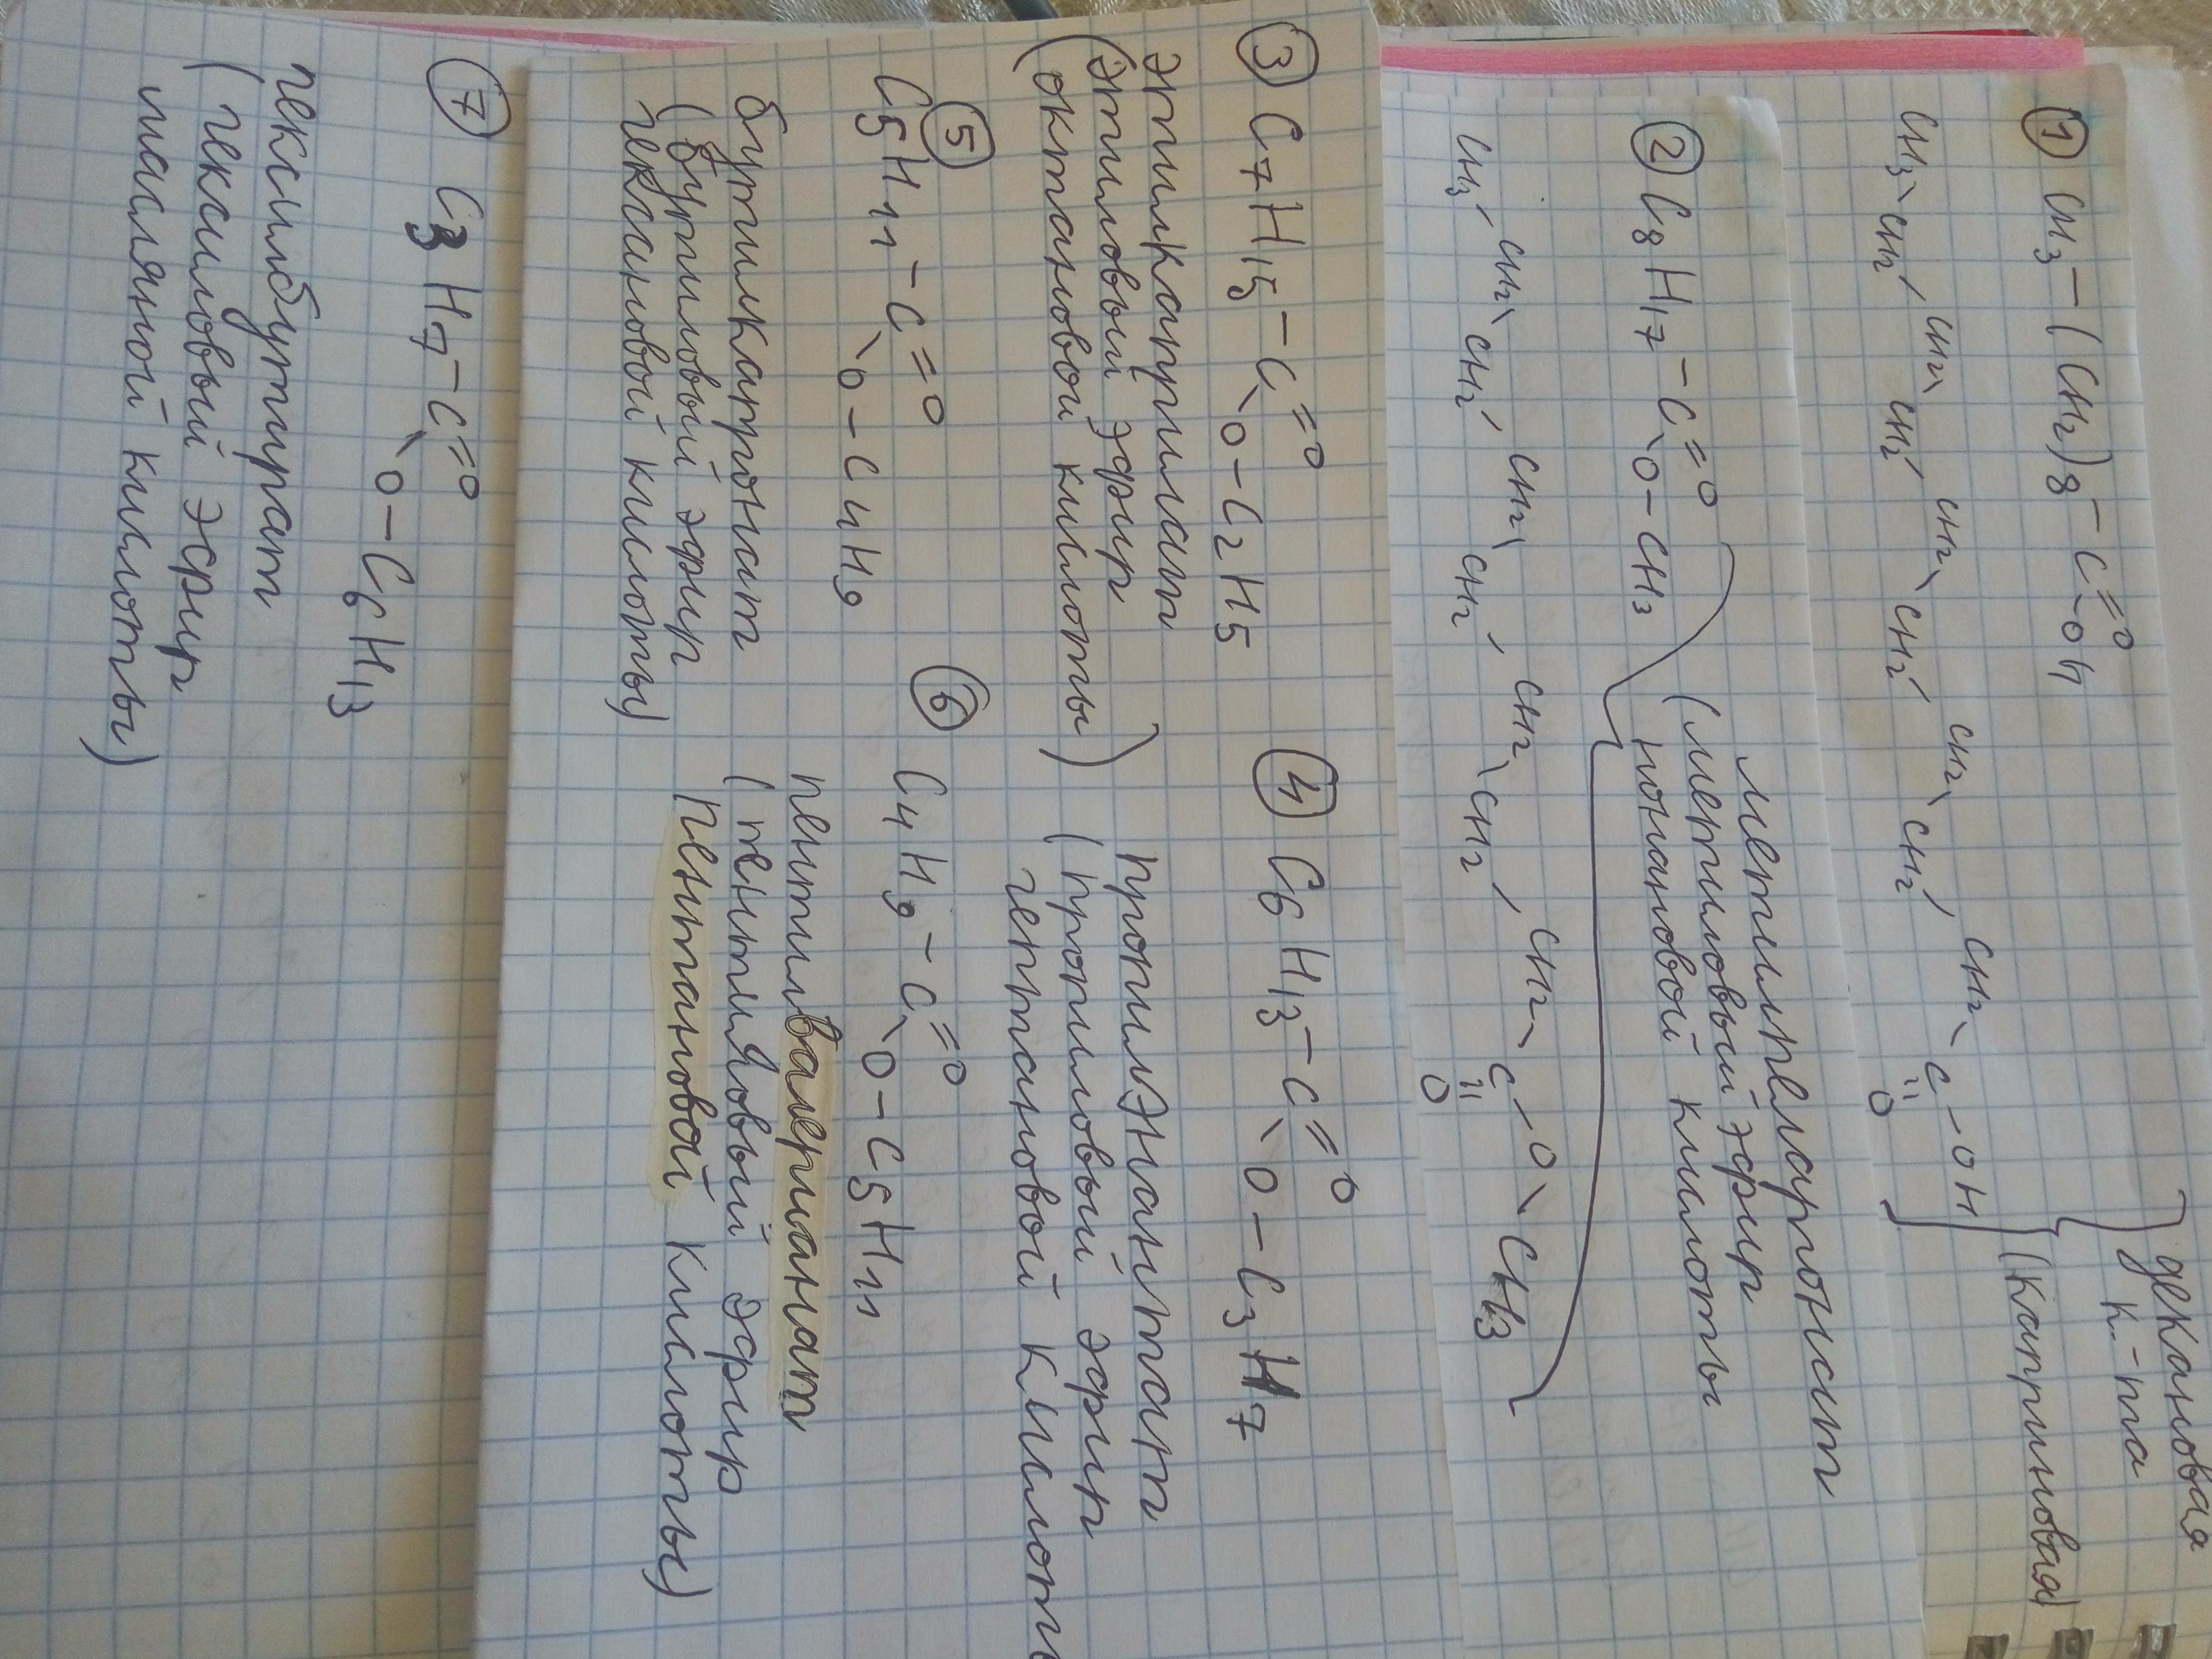 ① CH3-(CH2)8-C=O-OH
CH3 CH2 CH2 CH2 CH2 CH2 CH2 CH2 CH2 C-OH
=O
декановая
к-та
(каприновая)
② C8H17-C=O
O-CH3
метилпеларгонат
(метиловый эфир
нонановой кислоты
CH3 CH2 CH2 CH2 CH2 CH2 CH2 CH2 C-O-CH3
=O
③ C7H15-C=O
O-C2H5
этилкаприлат
(этиловый эфир
октановой кислоты)
④ C6H13-C=O
O-C3H7
пропилэнантат
(пропиловый эфир
гептановой кислоты
⑤
C5H11-C=O
O-C4H9
бутилкапронат
(бутиловый эфир
гексановой кислоты)
⑥
C4H9-C=O
O-C5H11
пентилвалерианат
(пентиловый эфир
пентановой кислоты)
⑦ C3H7-C=O
O-C6H13
гексилбутират
(гексиловый эфир
масляной кислоты)